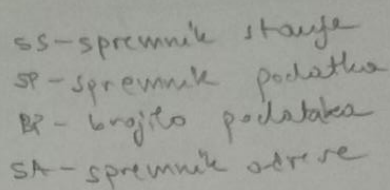 SS - spremnik stanja
SP - spremnik podatka
BP - brojilo podataka
SA - spremnik adrese